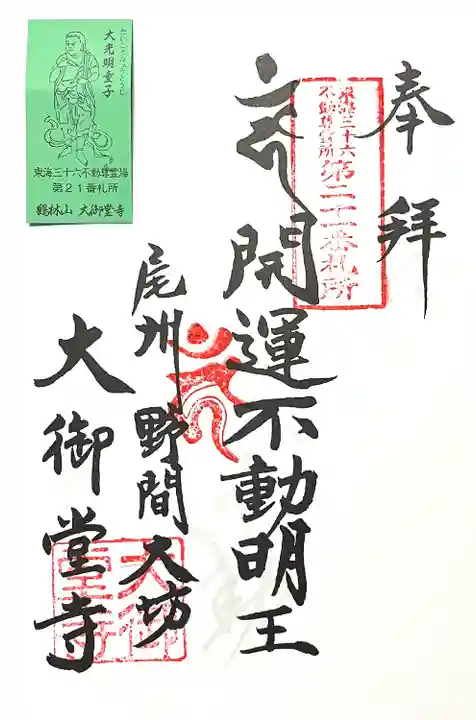 奉拝
東海三十六
不動尊霊場
第二十一番札所
開運不動明王
尾州野間大坊
大御堂寺
大御
堂寺
だいこうみょうどうじ
大光明童子
東海三十六不動尊霊場
第21番札所
鶴林山 大御堂寺